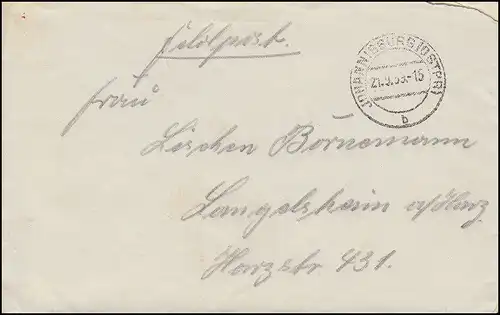 Feldpost.
JOHANNISBURG (OSTPR)
21.9.39.-15
b
Frau
Lischen Bornemann
Langelsheim a/Harz
Harzstr 431.